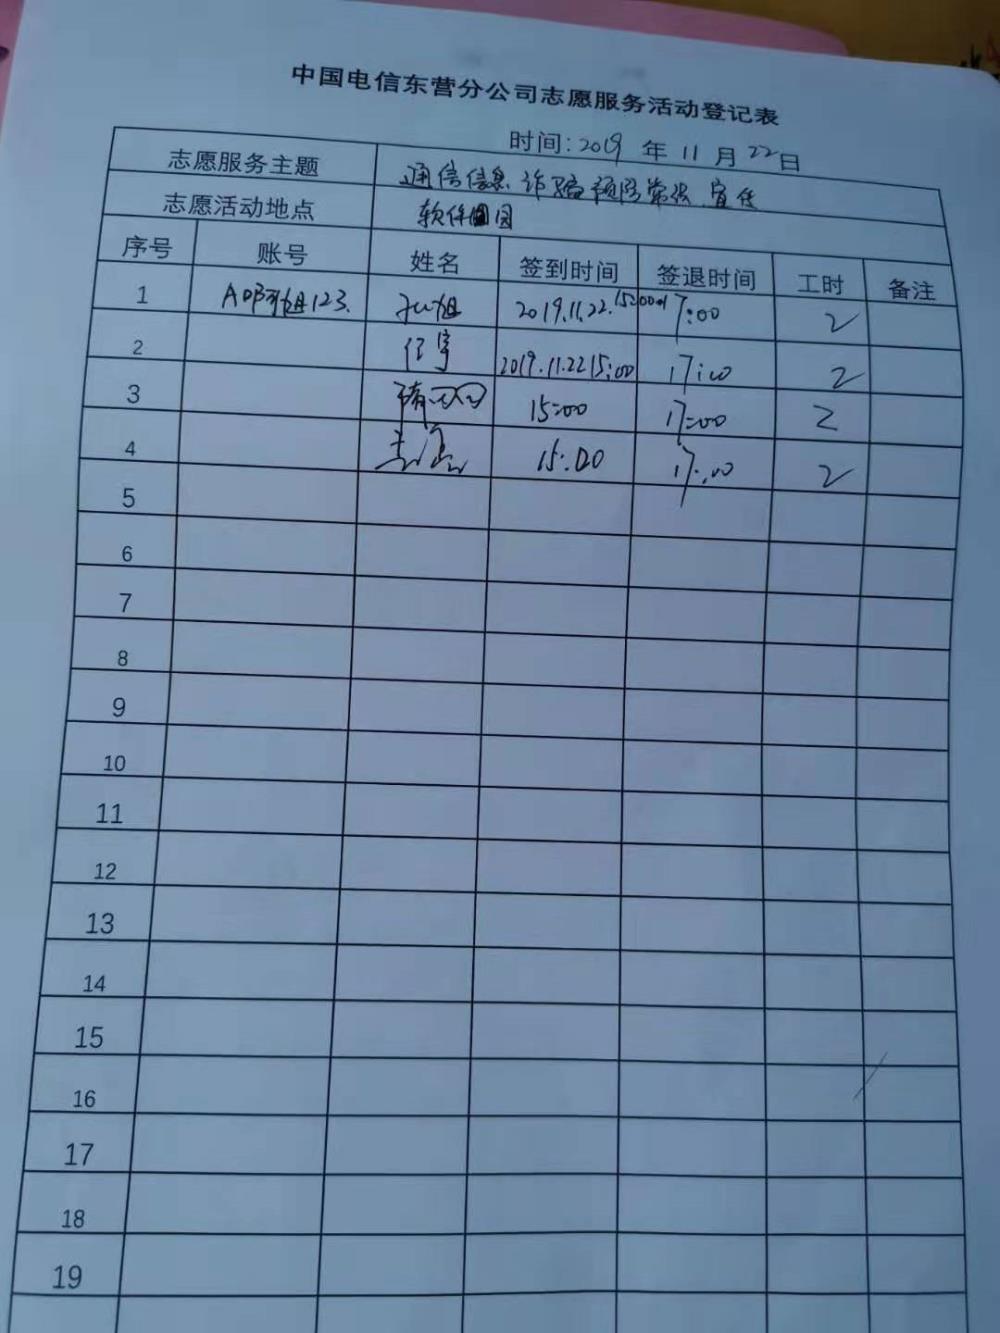 中国电信东营分公司志愿服务活动登记表
时间:2019年11月22日
志愿服务主题 通信信息诈骗预防常识宣传
志愿活动地点 软件园
序号 账号 姓名 签到时间 签退时间 工时 备注
1 2019.11.22. 15:00 17:00 2
2 任宇 2019.11.22 15:00 17:00 2
3 15:00 17:00 2
4 15:00 17:00 2
5
6
7
8
9
10
11
12
13
14
15
16
17
18
19